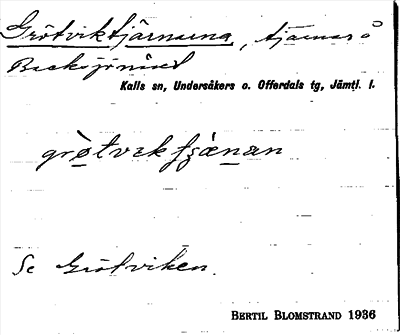 Grötviktjärnarna, tjärnar å
Backsjönäset
Kalls sn, Undersåkers o. Offerdals tg, Jämtl. l.
grö̀tvɩk fʂæ̀nan
Se Grötviken.
BERTIL BLOMSTRAND 1936